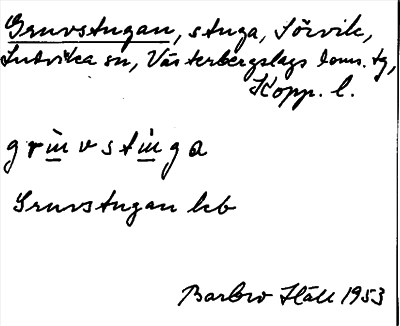 Gruvstugan, stuga, Sörvik,
Ludvika sn, Västerbergslags doms. tg,
Kopp. l.
grùvstùga
Gruvstugan kb
Barbro Häll 1953